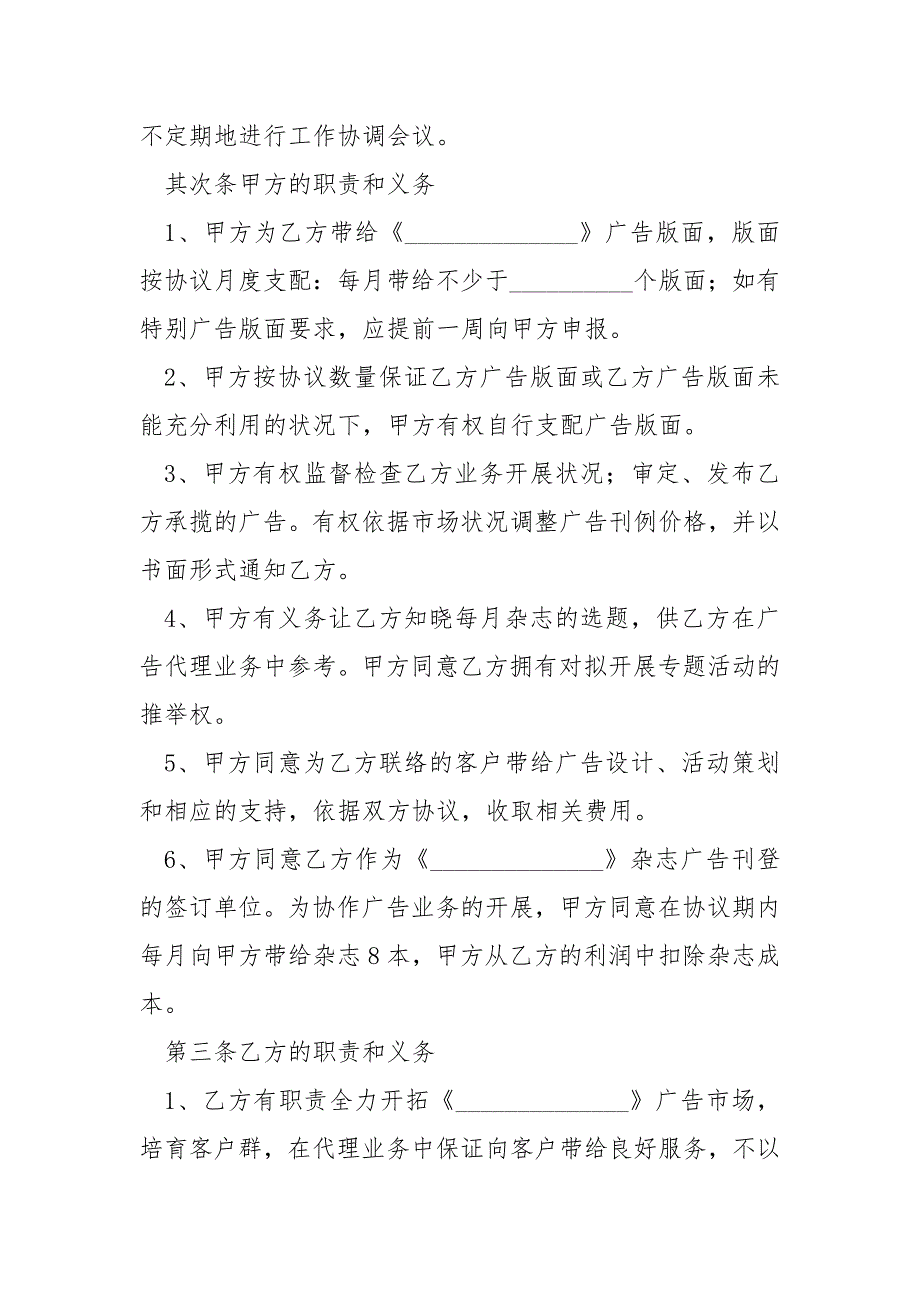 不定期地进行工作协调会议。
其次条甲方的职责和义务
1、甲方为乙方带给《______________》广告版面，版面
按协议月度支配：每月带给不少于__________个版面；如有
特别广告版面要求，应提前一周向甲方申报。
2、甲方按协议数量保证乙方广告版面或乙方广告版面未
能充分利用的状况下，甲方有权自行支配广告版面。
3、甲方有权监督检查乙方业务开展状况；审定、发布乙
方承揽的广告。有权依据市场状况调整广告刊例价格，并以
书面形式通知乙方。
4、甲方有义务让乙方知晓每月杂志的选题，供乙方在广
告代理业务中参考。甲方同意乙方拥有对拟开展专题活动的
推举权。
5、甲方同意为乙方联络的客户带给广告设计、活动策划
和相应的支持，依据双方协议，收取相关费用。
6、甲方同意乙方作为《______________》杂志广告刊登
的签订单位。为协作广告业务的开展，甲方同意在协议期内
每月向甲方带给杂志８本，甲方从乙方的利润中扣除杂志成
本。
第三条乙方的职责和义务
1、乙方有职责全力开拓《______________》广告市场，
培育客户群，在代理业务中保证向客户带给良好服务，不以